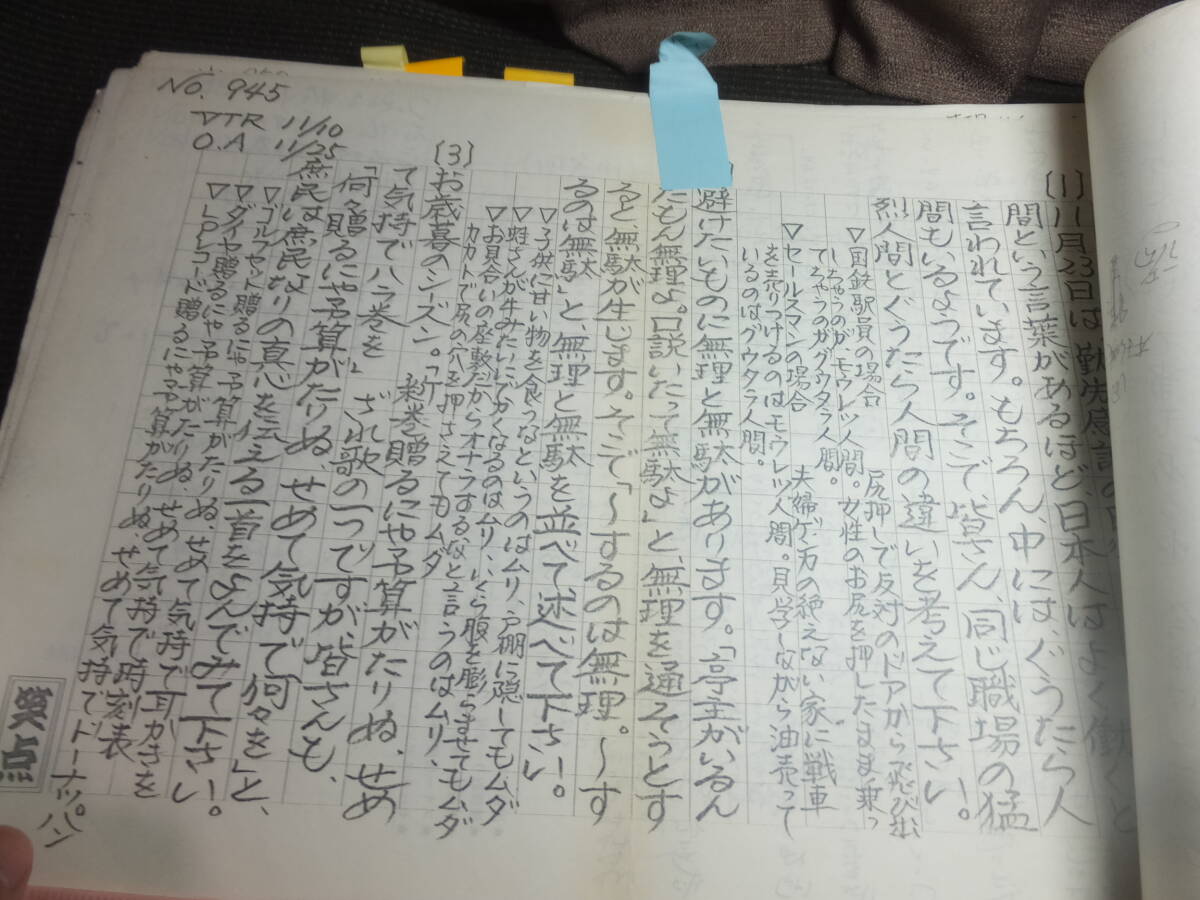 No. 945
VTR 11/10
O.A 11/25
〔1〕11月23日は勤労感謝の日。
間という言葉があるほど、日本人はよく働くと
言われています。もちろん、中には、ぐうたら人
間もいるようです。そこで、皆さん、同じ職場の猛
烈人間とぐうたら人間の違いを考えて下さい。
▽国鉄駅員の場合 尻押しで反対のドアから飛び出
しちゃうのがモウレツ人間。女性のお尻を押したまま乗っ
てっちゃうのがグウタラ人間。
▽セールスマンの場合 夫婦ゲンカの絶えない家に戦車
を売りつけるのはモウレツ人間。見学しながら油売って
いるのはグウタラ人間。
避けたいものに無理と無駄があります。「亭主がいるん
だもん無理よ。口説いたって無駄よ」と、無理を通そうとす
ると、無駄が生じます。そこで「〜するのは無理。〜す
るのは無駄」と、無理と無駄を並べて述べて下さい。
▽子供に甘い物を食うなというのはムリ、戸棚に隠してもムダ
▽蛙さんが牛みたいにでかくなるのはムリ、いくら腹を膨らませてもムダ
▽お見合いの座敷だからオナラするなと言うのはムリ、
カカトで尻の穴を押さえてもムダ
〔3〕
お歳暮のシーズン。「新巻贈るにゃ予算がたりぬ、せめ
て気持でハラ巻を」 ざれ歌の一つですが、皆さんも、
「何々贈るにゃ予算がたりぬ、せめて気持で何々を」と、
庶民は庶民なりの真心を伝える一首をよんでみて下さい。
▽ゴルフセット贈るにゃ予算がたりぬ、せめて気持で耳かきを
▽ダイヤ贈るにゃ予算がたりぬ、せめて気持で時刻表
▽LPレコード贈るにゃ予算がたりぬ、せめて気持でドーナツパン
笑点